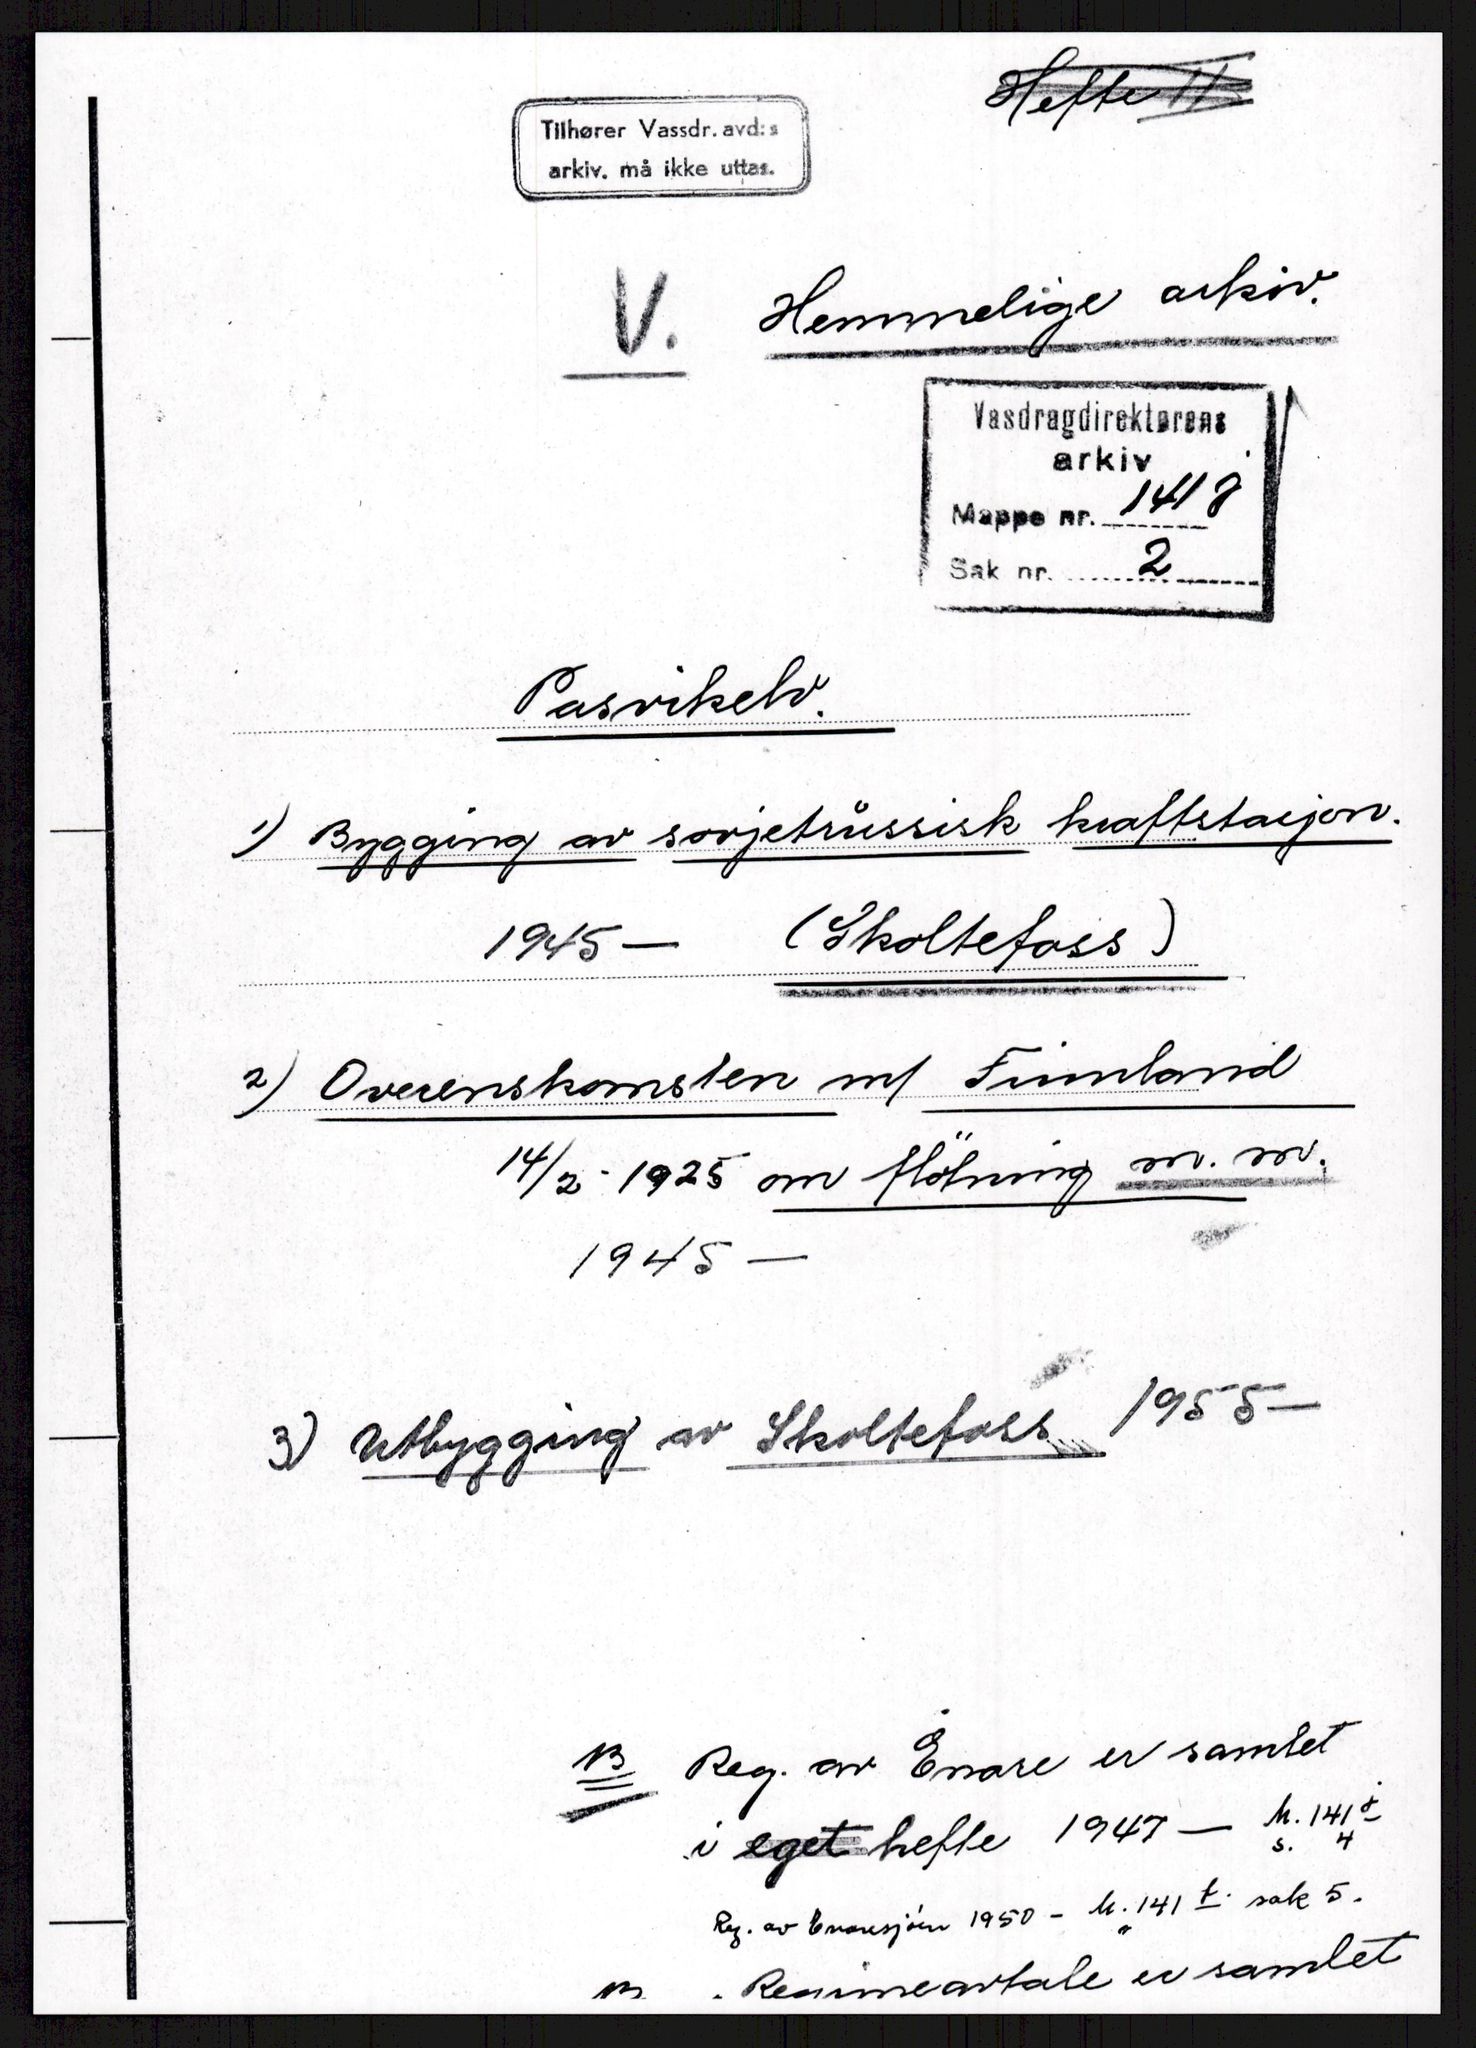 Hefte II
Tilhører Vassdr. avd:s
arkiv. må ikke uttas.
V. Hemmelige arkiv.
Vasdragdirektørens
arkiv
Mappe nr. 141 j
Sak nr. 2
Pasvikelv.
1) Bygging av sovjetrüssisk kraftstasjon.
1945 — (Skoltefoss)
2) Overenskomsten m/ Finnland
14/2 - 1925 om flötning m. m.
1945 —
3) Utbygging av Skoltefoss 1955 —
NB Reg. av Enare er samlet
i eget hefte 1947 — M. 141 j
s. 4
Reg. av Enaresjöen 1950 – M. 141 j. sak 5.
NB. Regimeavtale er samlet